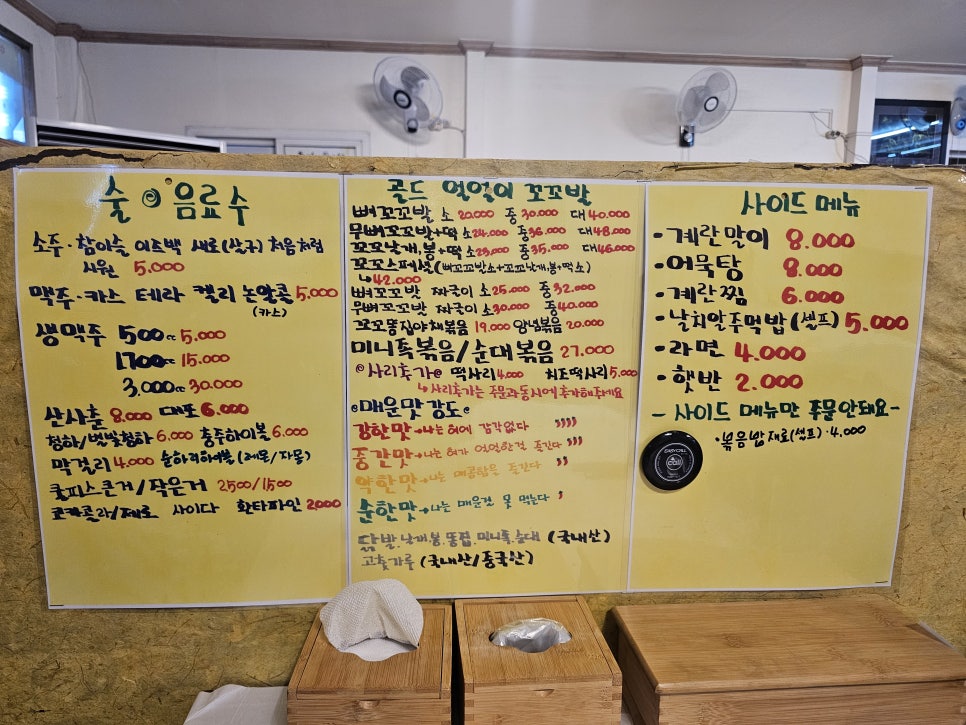 술 음료수
소주·참이슬 이즈백 새로(살구) 처음처럼
시원 5.000
맥주·카스 테라 켈리 논알콜 5.000
(카스)
생맥주 500cc 5.000
1700cc 15.000
3.000cc 30.000
산사춘 8.000 대포 6.000
청하/별빛청하 6.000 충주하이볼 6.000
막걸리 4.000 순하리하이볼 (레몬/자몽)
쿨피스큰거/작은거 2500/1500
코카콜라/제로 사이다 환타파인 2.000
골드 얼얼이 꼬꼬발
뼈꼬꼬발 소 20.000 중 30.000 대 40.000
무뼈꼬꼬발+떡 소 24.000 중 36.000 대 48.000
꼬꼬날개,봉+떡 소 23.000 중 35.000 대 46.000
꼬꼬스페셜(뼈꼬꼬발소+꼬꼬날개,봉+떡소)
↳42.000
뼈꼬꼬밧 짜글이 소 25.000 중 32.000
무뼈꼬꼬밧 짜글이 소 30.000 중 40.000
꼬꼬똥집야채볶음 19.000 양념볶음 20.000
미니족볶음/순대볶음 27.000
@사리추가@ 떡사리 4.000 치즈떡사리 5.000
↳사리추가는 주문과동시에 추가해주세요
매운맛 강도
강한맛→나는 혀에 감각없다
중간맛→나는 혀가 얼얼한걸 즐긴다
약한맛→나는 매콤함을 즐긴다
순한맛→나는 매운것 못 먹는다
닭발.날개봉.똥집.미니족.순대 (국내산)
고춧가루 (국내산/중국산)
사이드 메뉴
·계란말이 8.000
·어묵탕 8.000
·계란찜 6.000
·날치알주먹밥(셀프) 5.000
·라면 4.000
·햇반 2.000
- 사이드 메뉴만 주문안돼요-
·볶음밥재료(셀프)·4.000
EASYCALL
call